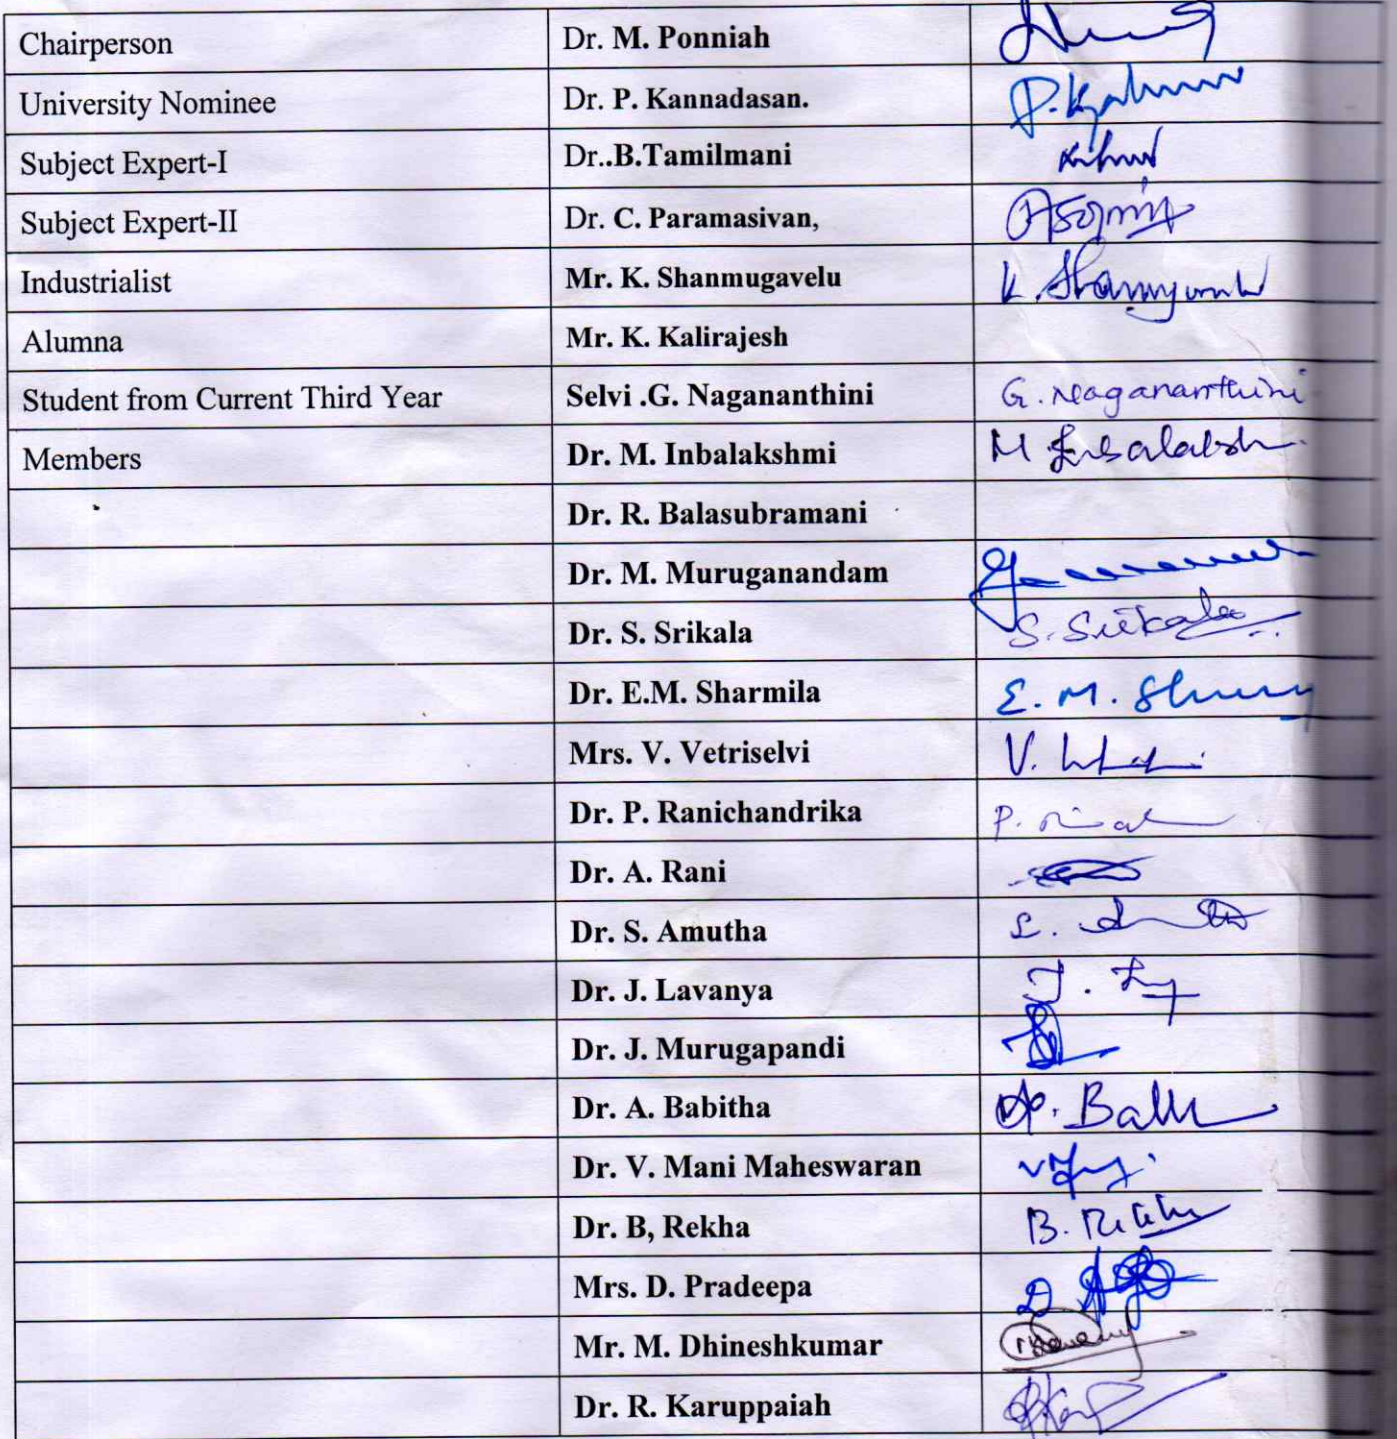 Chairperson Dr. M. Ponniah
University Nominee Dr. P. Kannadasan.
Subject Expert-I Dr..B.Tamilmani
Subject Expert-II Dr. C. Paramasivan,
Industrialist Mr. K. Shanmugavelu K.
Alumna Mr. K. Kalirajesh
Student from Current Third Year Selvi .G. Nagananthini G. Nagananthini
Members Dr. M. Inbalakshmi M
Dr. R. Balasubramani
Dr. M. Muruganandam
Dr. S. Srikala S. Srikala
Dr. E.M. Sharmila E. M.
Mrs. V. Vetriselvi V.
Dr. P. Ranichandrika P.
Dr. A. Rani
Dr. S. Amutha S.
Dr. J. Lavanya J.
Dr. J. Murugapandi
Dr. A. Babitha
Dr. V. Mani Maheswaran
Dr. B, Rekha B. Rekha
Mrs. D. Pradeepa D
Mr. M. Dhineshkumar
Dr. R. Karuppaiah